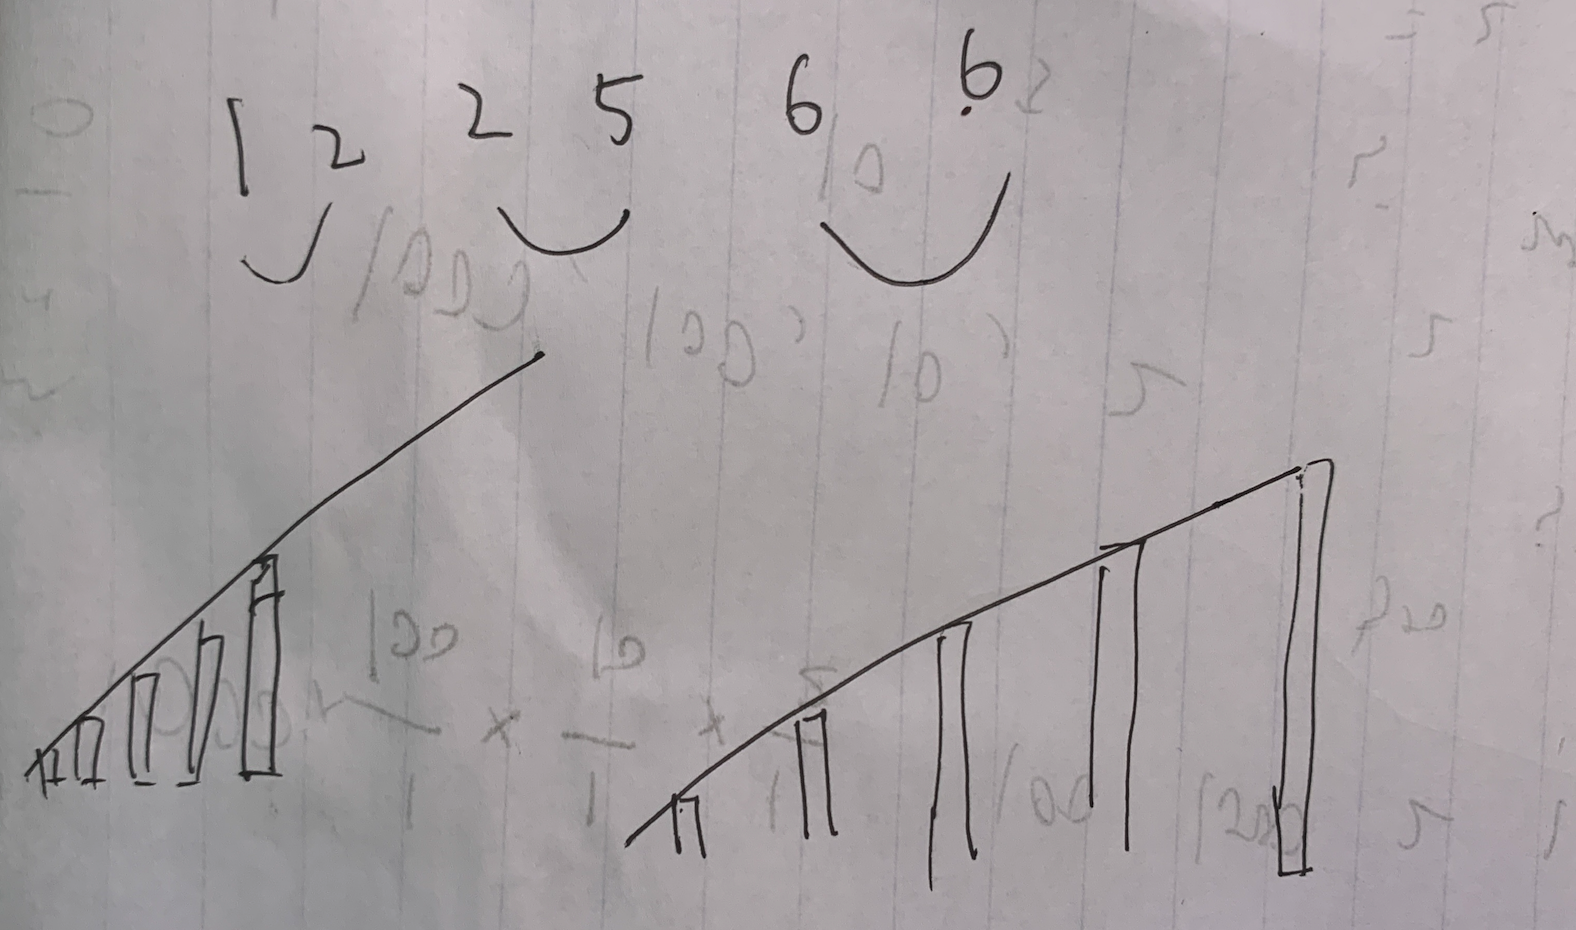 1 2 2 5 6 6